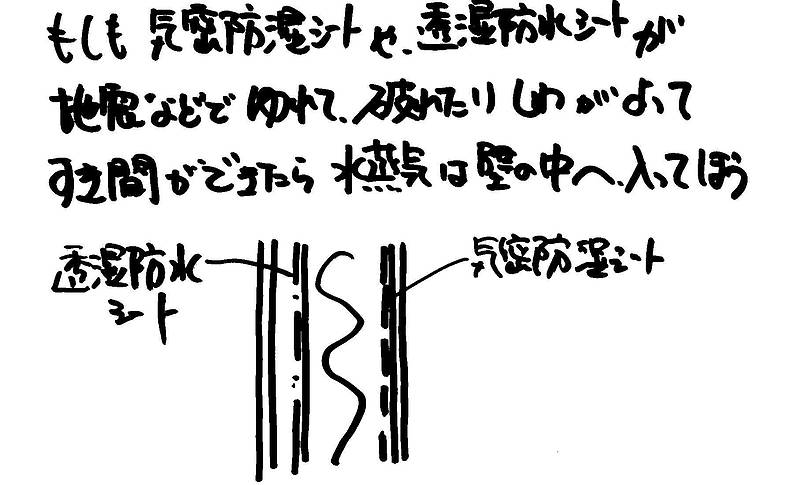 もしも 気密防湿シートや、透湿防水シートが
地震などで ゆれて、破れたり しわ がよって
すき間ができたら 水蒸気は壁の中へ、入ってぼう
透湿防水
シート
気密防湿シート